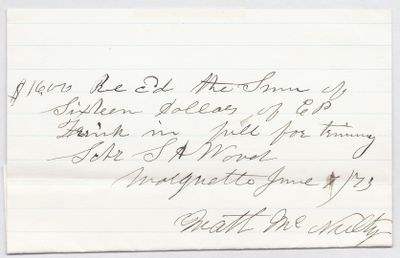 $16.00 Rc Ed the Sum of
Sixteen Dollars of E P
Frink in full for
S A Wood
Marquette June 7/73
Math Mc Nulty